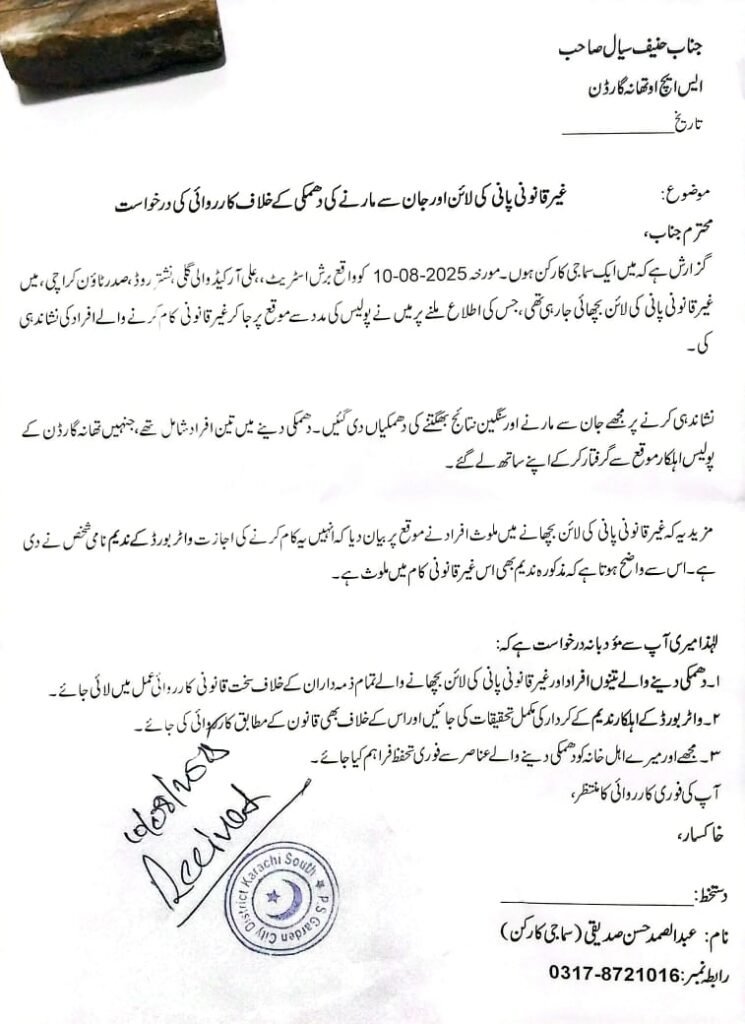 جناب حنیف سیال صاحب
ایس ایچ او تھانہ گارڈن
تاریخ__________
موضوع: غیر قانونی پانی کی لائن اور جان سے مارنے کی دھمکی کے خلاف کارروائی کی درخواست
محترم جناب،
گزارش ہے کہ میں ایک سماجی کارکن ہوں۔ مورخہ 10-08-2025 کو واقع برش اسٹریٹ،، علی آرکیڈ والی گلی، نشتر روڈ، صدر ٹاؤن کراچی، میں
غیر قانونی پانی کی لائن بچھائی جا رہی تھی، جس کی اطلاع ملنے پر میں نے پولیس کی مدد سے موقع پر جا کر غیر قانونی کام کرنے والے افراد کی نشاندہی
کی۔
نشاندہی کرنے پر مجھے جان سے مارنے اور سنگین نتائج بھگتنے کی دھمکیاں دی گئیں۔ دھمکی دینے میں تین افراد شامل تھے، جنہیں تھانہ گارڈن کے
پولیس اہلکار موقع سے گرفتار کر کے اپنے ساتھ لے گئے۔
مزید یہ کہ غیر قانونی پانی کی لائن بچھانے میں ملوث افراد نے موقع پر بیان دیا کہ انہیں یہ کام کرنے کی اجازت واٹر بورڈ کے ندیم نامی شخص نے دی
ہے۔ اس سے واضح ہوتا ہے کہ مذکورہ ندیم بھی اس غیر قانونی کام میں ملوث ہے۔
لہٰذا میری آپ سے مؤدبانہ درخواست ہے کہ:
۱۔ دھمکی دینے والے تینوں افراد اور غیر قانونی پانی کی لائن بچھانے والے تمام ذمہ داران کے خلاف سخت قانونی کارروائی عمل میں لائی جائے۔
۲۔ واٹر بورڈ کے اہلکار ندیم کے کردار کی مکمل تحقیقات کی جائیں اور اس کے خلاف بھی قانون کے مطابق کارروائی کی جائے۔
۳۔ مجھے اور میرے اہل خانہ کو دھمکی دینے والے عناصر سے فوری تحفظ فراہم کیا جائے۔
آپ کی فوری کارروائی کا منتظر،
خاکسار،
Received
P.S Garden City District Karachi South
دستخط:__________________
نام: عبدالصمد حسن صدیقی (سماجی کارکن)
رابطہ نمبر: 0317-8721016